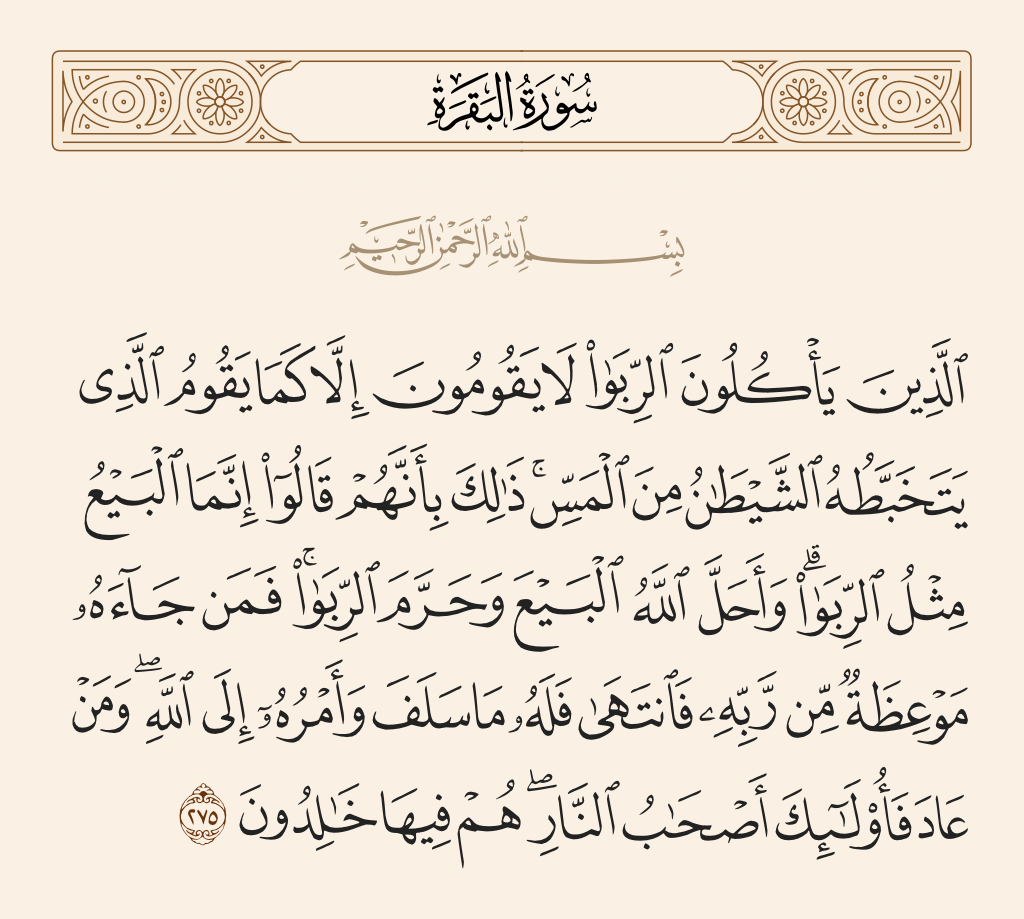 سُورَةُ البَقَرَةِ
بِسْمِ ٱللَّهِ ٱلرَّحْمَٰنِ ٱلرَّحِيمِ
ٱلَّذِينَ يَأْكُلُونَ ٱلرِّبَوٰا۟ لَا يَقُومُونَ إِلَّا كَمَا يَقُومُ ٱلَّذِى
يَتَخَبَّطُهُ ٱلشَّيْطَٰنُ مِنَ ٱلْمَسِّ ۚ ذَٰلِكَ بِأَنَّهُمْ قَالُوٓا۟ إِنَّمَا ٱلْبَيْعُ
مِثْلُ ٱلرِّبَوٰا۟ ۗ وَأَحَلَّ ٱللَّهُ ٱلْبَيْعَ وَحَرَّمَ ٱلرِّبَوٰا۟ ۚ فَمَن جَآءَهُۥ
مَوْعِظَةٌ مِّن رَّبِّهِۦ فَٱنتَهَىٰ فَلَهُۥ مَا سَلَفَ وَأَمْرُهُۥٓ إِلَى ٱللَّهِ ۖ وَمَنْ
عَادَ فَأُو۟لَٰٓئِكَ أَصْحَٰبُ ٱلنَّارِ ۖ هُمْ فِيهَا خَٰلِدُونَ ٢٧٥